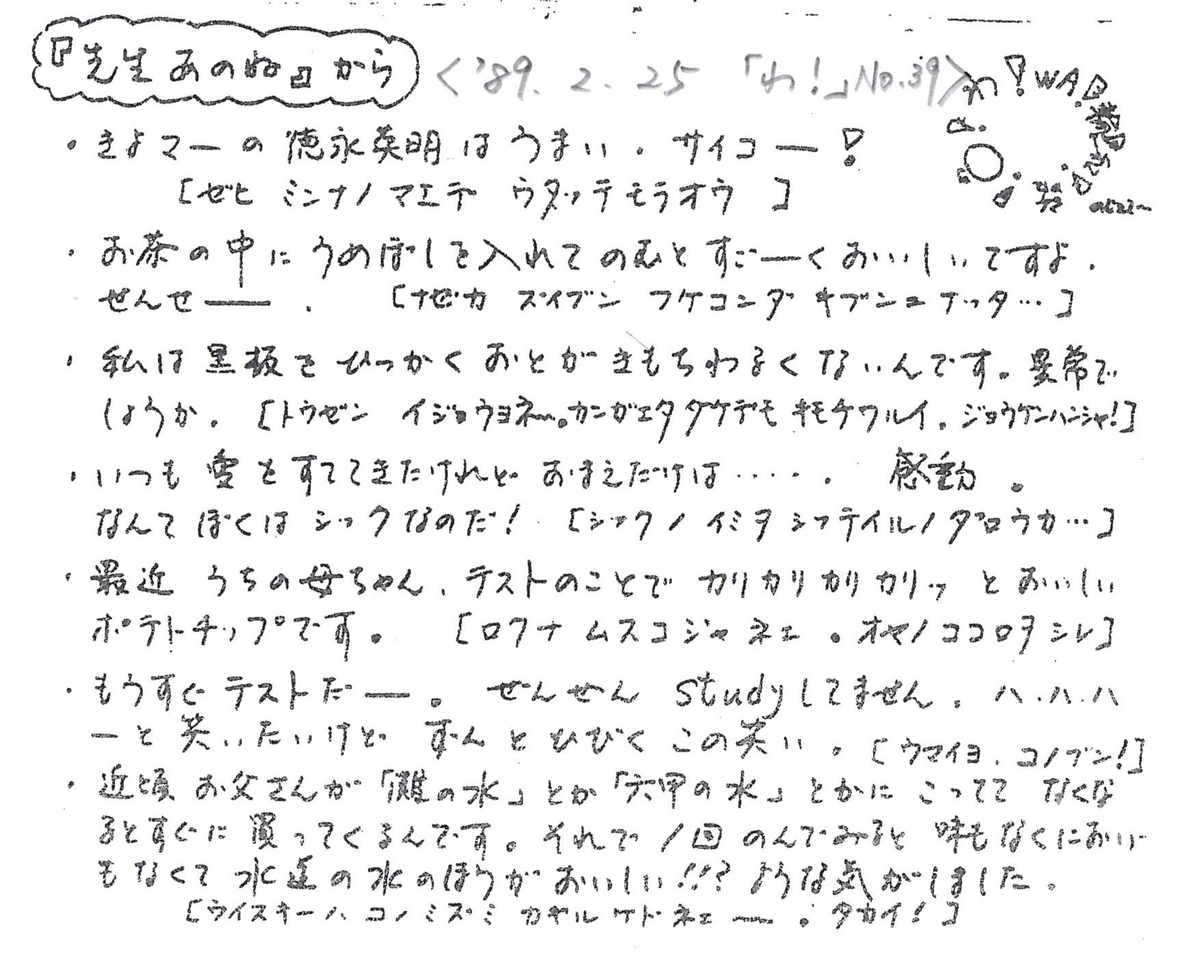 『先生あのね』から 〈'89.2.25 「わ!」No.39〉
わ!WAB
・きよマーの徳永英明はうまい。サイコー!
[ゼヒ ミンナノマエデ ウタッテモラオウ]
・お茶の中にうめぼしを入れてのむとすごーくおいしいですよ。
せんせー。 [ナゼカ ズイブン フケコンダ キブンニナッタ…]
・私は黒板をひっかくおとがきもちわるくないんです。異常で
しょうか。[トウゼン イジョウヨネ〜。カンガエタダケデモ キモチワルイ。ジョウケンハンシャ!]
・いつも愛をすててきたけれど、おまえだけは‥‥。 感動。
なんてぼくはシックなのだ! [シックノイミヲシッテイルノダロウカ…]
・最近 うちの母ちゃん、テストのことでカリカリカリカリッとおいしい
ポテトチップです。 [ロクナ ムスコジャネエ。オヤノココロヲシレ]
・もうすぐテストだー。ぜんぜん studyしてません。ハ.ハ.ハ
ーと笑いたいけど ずんとひびくこの笑い。[ウマイヨ、コノブン!]
・近頃お父さんが「灘の水」とか「六甲の水」とかにこってて なくな
るとすぐに買ってくるんです。それで1回のんでみると味もなくにおい
もなくて水道の水のほうがおいしい!!?ような気がしました。
[ウイスキーハ コノミズミ カギルケドネェー。タカイ!]